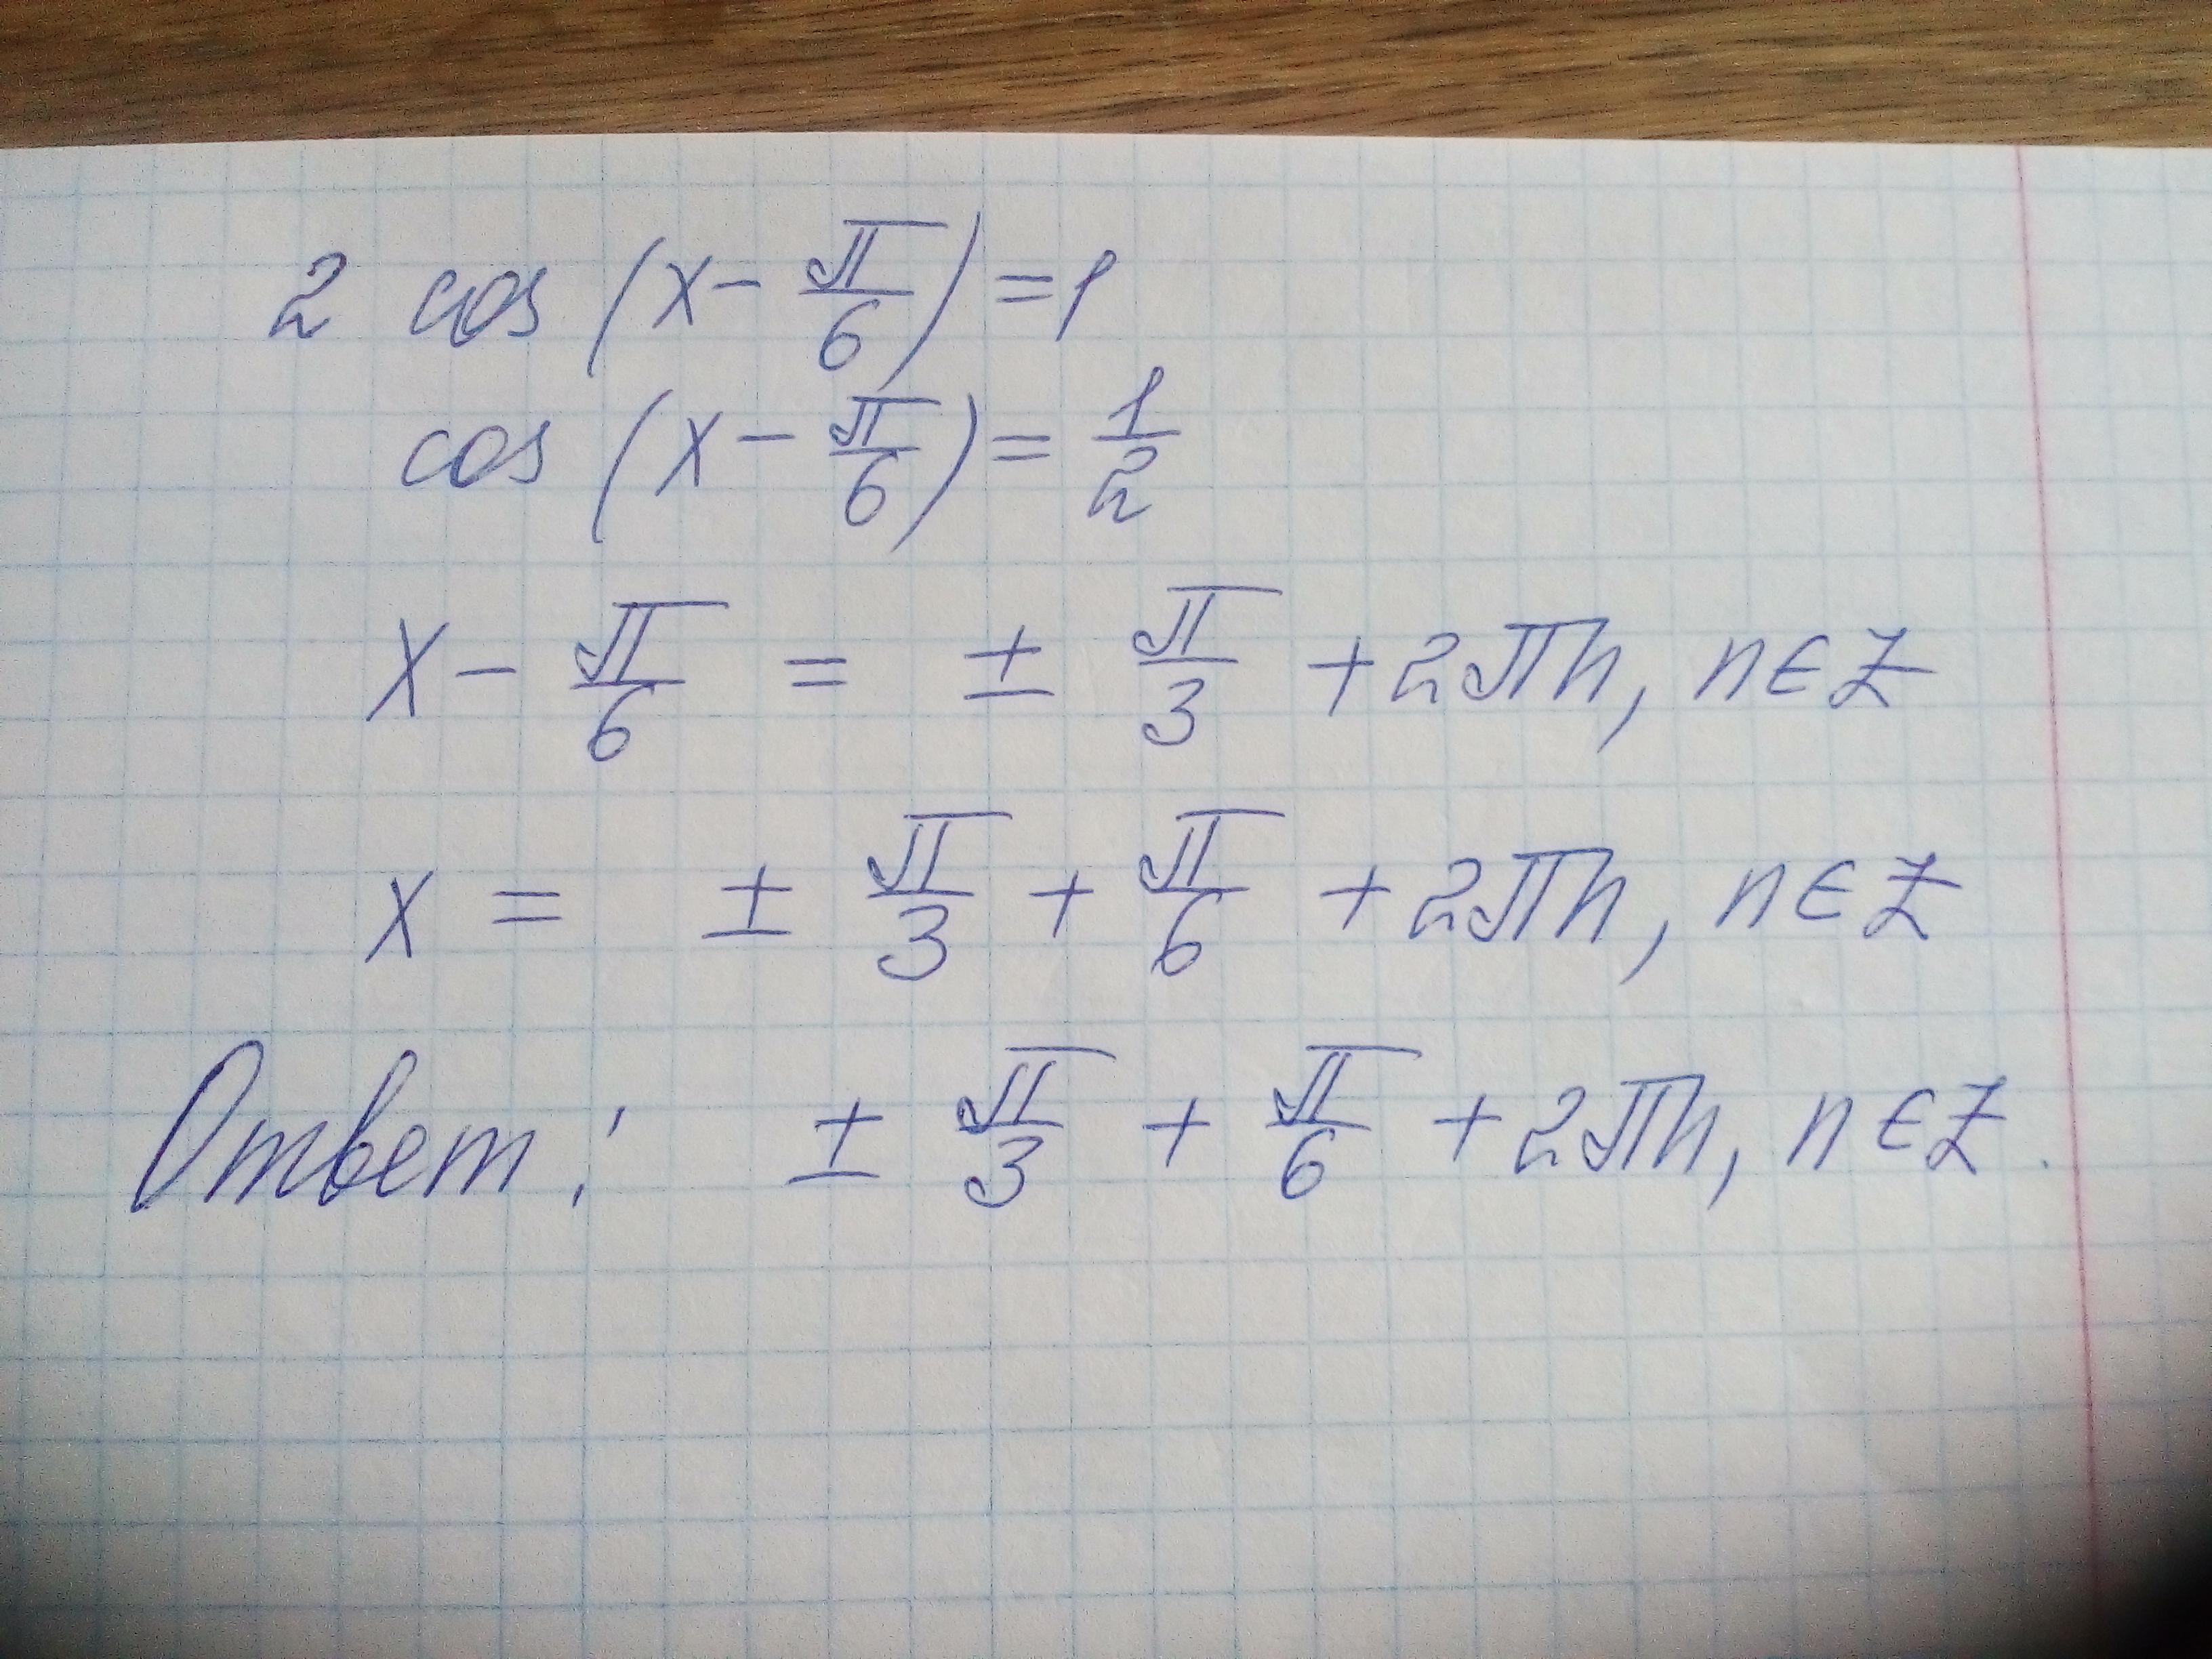 2 cos (x - π/6) = 1
cos (x - π/6) = 1/2
x - π/6 = ± π/3 + 2πn, n∈Z
x = ± π/3 + π/6 + 2πn, n∈Z
Ответ: ± π/3 + π/6 + 2πn, n∈Z.